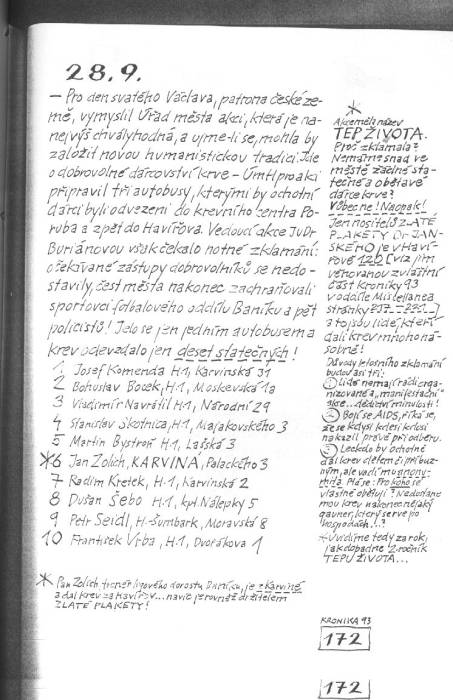 28.9.
– Pro den svatého Václava, patrona české ze-
mě, vymyslil Úřad města akci, která je na-
nejvýš chvályhodná, a ujme-li se, mohla by
založit novou humanistickou tradici. Jde
o dobrovolné dárcovství krve – ÚmH pro akci
připravil tři autobusy, kterými by ochotní
dárci byli odvezeni do krevního centra Po-
ruba a zpět do Havířova. Vedoucí akce JuDr
Buriánovou však čekalo notné zklamání:
očekávané zástupy dobrovolníků se nedo-
stavily, čest města nakonec zachraňovali
sportovci fotbalového oddílu Baníku a pět
policistů! Jelo se jen jedním autobusem a
krev odevzdalo jen deset statečných!
1 Josef Komenda H-1, Karvinská 31
2 Bohuslav Bocek, H-1, Moskevská 1a
3 Vladimír Navrátil H-1, Národní 29
4 Stanislav Skotnica, H-1, Majakovského 3
5 Martin Bystroň H-1, Lašská 3
*6 Jan Zolich, KARVINÁ, Palackého 3
7 Radim Kretek, H-1, Karvinská 2
8 Dušan Šebo H-1, kpt. Nálepky 5
9 Petr Seidl, H-Šumbark, Moravská 8
10 František Vrba, H-1, Dvořákova 1
* Pan Zolich, trenér ligového dorostu Baníku, je z Karviné
a dal krev za Havířov... navíc je rovněž držitelem
ZLATÉ PLAKETY!
*
Akce měla název
TEP ŽIVOTA.
Proč zklamala?
Nemáme snad ve
městě žádné sta-
tečné a obětavé
dárce krve?
Vůbec ne! Naopak!
Jen nositelů ZLATÉ
PLAKETY Dr JAN-
SKÉHO je v Haví-
řově 120 [viz jim
věnovanou zvláštní
část Kroniky 93
v oddíle Miscellanea
stránky]
a to jsou lidé, kteří
dali krev mnohoná-
sobně!
Důvody letošního zklamání
budou asi tři:
1 Lidé nemají rádi orga-
nizované a "manifestační"
akce... dědictví minulosti!
2 Bojí se AIDS, říká se,
že se kdysi kdesi kdosi
nakazil právě při odběru.
3 Leckdo by ochotně
dal krev dětem či příbuz-
ným, ale vadí mu anony-
mita. Ptá se: Pro koho se
vlastně obětuji? Nedostane
mou krev nakonec nějaký
gauner, který se rve po
hospodách..!?
+ Uvidíme tedy za rok,
jak dopadne 2. ročník
TEPU ŽIVOTA...
KRONIKA 93
172
172